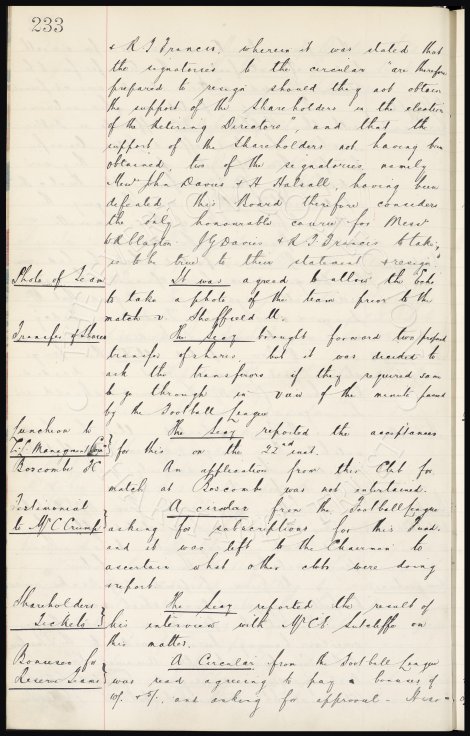 233
& R T Francis, wherein it was stated that
the signatories to the circular "are therefore
prepared to resign should they not obtain
the support of the Shareholders in the election
of the Retiring Directors", and that the
support of the Shareholders not having been
obtained, two of the signatories, namely
Messrs John Davies & A Halsall, having been
defeated, this Board therefore considers
the only honourable course for Messrs
J G Davies & R T Francis to take,
is to be true to their statement & resign"
Photo of Team
It was agreed to allow the Echo
to take a photo of the team prior to the
match v. Sheffield U.
Transfer of Shares
The Secy brought forward two proposed
transfers of shares, but it was decided to
ask the transferors if they required same
to go through in view of the minute passed
by the Football League
Luncheon to
F.L. Management Com
The Secy reported the acceptances
for this on the 22nd inst.
Boscombe FC
An application from this Club for
match at Boscombe was not entertained.
Testimonial
to Mr C Crump
A circular from the Football League
asking for subscriptions for this Fund.
and it was left to the Chairman to
ascertain what other clubs were doing
& report.
Shareholders
Tickets
The Secy reported the result of
his interview with Mr C E Sutcliffe on
this matter.
Bonuses for
Reserve Teams
A Circular from the Football League
was read agreeing to pay a bonuses of
10/- & 5/-, and asking for approval - Also